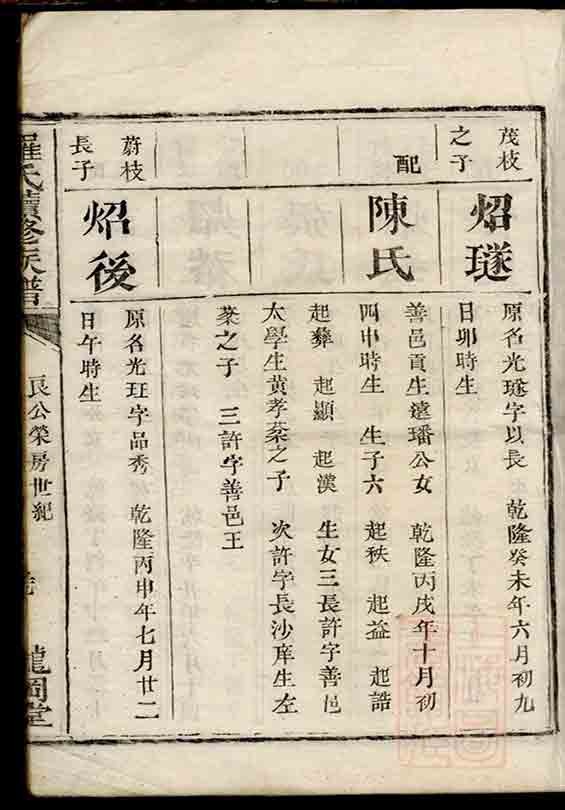 茂枝
之子
炤璲
原名光璲字以長 乾隆癸未年六月初九
日卯時生
配
陳氏
善邑貢生遠璠公女 乾隆丙戌年十月初
四申時生 生子六 起秩 起益 起誥
起彝 起顯 起漢 生女三長許字善邑
太學生黄孝蔡之子 次許字長沙庠生左
蔡之子 三許字善邑王
蔚枝
長子
炤後
原名光玨字品秀 乾隆丙申年七月廿二
日午時生
羅氏續修族譜
良公榮房世紀
龍岡堂